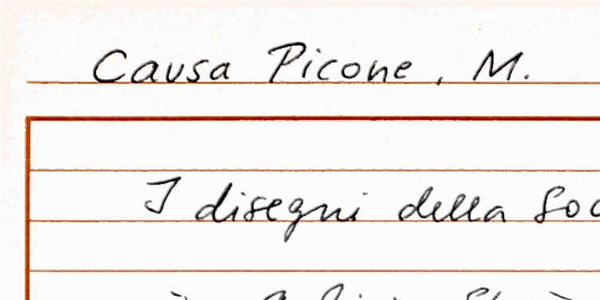 Causa Picone, M.
I disegni della Soc